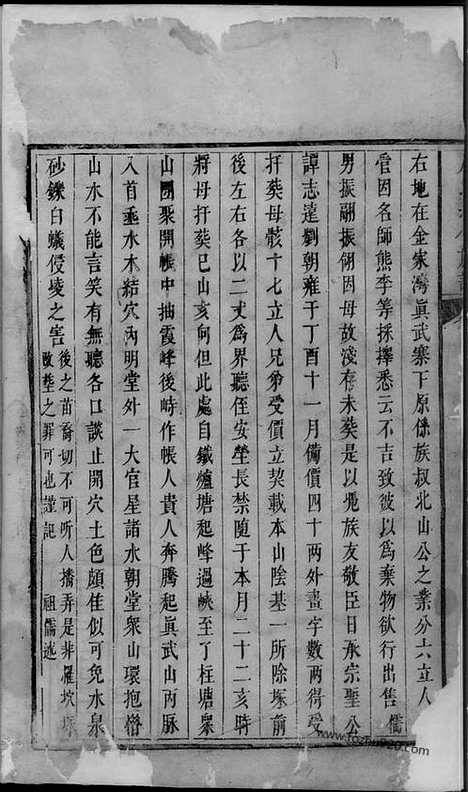 右地在金家灣眞武寨下原係族叔北山公之業分六立人
管因名師熊李等採擇悉云不吉致彼以爲棄物欲行出售儒
男振翮振翎因母故淺存未葬是以凂族友敬臣日承宗聖公
譚志達劉朝雍于丁酉十一月備價四十两外畫字數两得受
扞葬母骸十七立人兄弟受價立契載本山陰基一所除塚前
後左右各以二丈爲界聽侄安塋長禁随于本月二十二亥時
將母扞葬巳山亥向但此處自鐵爐塘起峰過峽至了柱塘羣
山團聚開帳中抽霞峰後峙作帳人貴人奔騰起眞武山丙脉
入首乘水木結穴內明堂外一大官星諸水朝堂衆山環抱巒
山水不能言笑有無聽各口談止開穴土色頗佳似可免水泉
砂鑠白蟻侵堎之害
後之苗裔切不可听人播弄是非罹坎塚
改塟之罪可也謹記 祖儒述
www.tozhu020.com